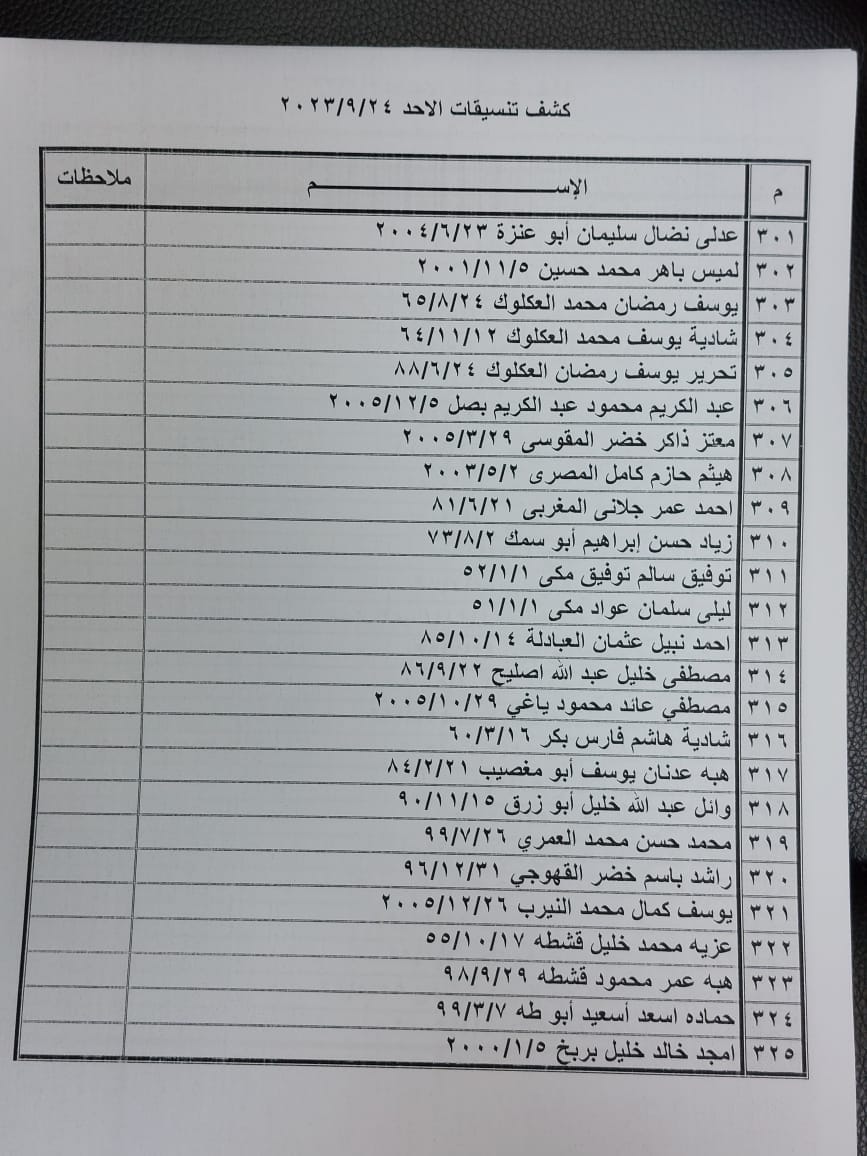 كشف تنسيقات الاحد ٢٠٢٣/٩/٢٤
م الإســـــم ملاحظات
٣٠١ عدلى نضال سليمان أبو عنزة ٢٠٠٤/٦/٢٣
٣٠٢ لميس باهر محمد حسين ٢٠٠١/١١/٥
٣٠٣ يوسف رمضان محمد العكلوك ٦٥/٨/٢٤
٣٠٤ شادية يوسف محمد العكلوك ٦٤/١١/١٢
٣٠٥ تحرير يوسف رمضان العكلوك ٨٨/٦/٢٤
٣٠٦ عبد الكريم محمود عبد الكريم بصل ٢٠٠٥/١٢/٥
٣٠٧ معتز ذاكر خضر المقوسى ٢٠٠٥/٣/٢٩
٣٠٨ هيثم حازم كامل المصرى ٢٠٠٣/٥/٢
٣٠٩ احمد عمر جلانى المغربى ٨١/٦/٢١
٣١٠ زياد حسن إبراهيم أبو سمك ٧٣/٨/٢
٣١١ توفيق سالم توفيق مكى ٥٢/١/١
٣١٢ ليلى سلمان عواد مكى ٥١/١/١
٣١٣ احمد نبيل عثمان العبادلة ٨٥/١٠/١٤
٣١٤ مصطفى خليل عبد الله اصليح ٨٦/٩/٢٢
٣١٥ مصطفي عائد محمود ياغي ٢٠٠٥/١٠/٢٩
٣١٦ شادية هاشم فارس بكر ٦٠/٣/١٦
٣١٧ هبه عدنان يوسف أبو مغصيب ٨٤/٢/٢١
٣١٨ وائل عبد الله خليل أبو زرق ٩٠/١١/١٥
٣١٩ محمد حسن محمد العمري ٩٩/٧/٢٦
٣٢٠ راشد باسم خضر القهوجي ٩٦/١٢/٣١
٣٢١ يوسف كمال محمد النيرب ٢٠٠٥/١٢/٢٦
٣٢٢ عزيه محمد خليل قشطه ٥٥/١٠/١٧
٣٢٣ هبه عمر محمود قشطه ٩٨/٩/٢٩
٣٢٤ حماده اسعد أسعيد أبو طه ٩٩/٣/٧
٣٢٥ امجد خالد خليل بربخ ٢٠٠٠/١/٥